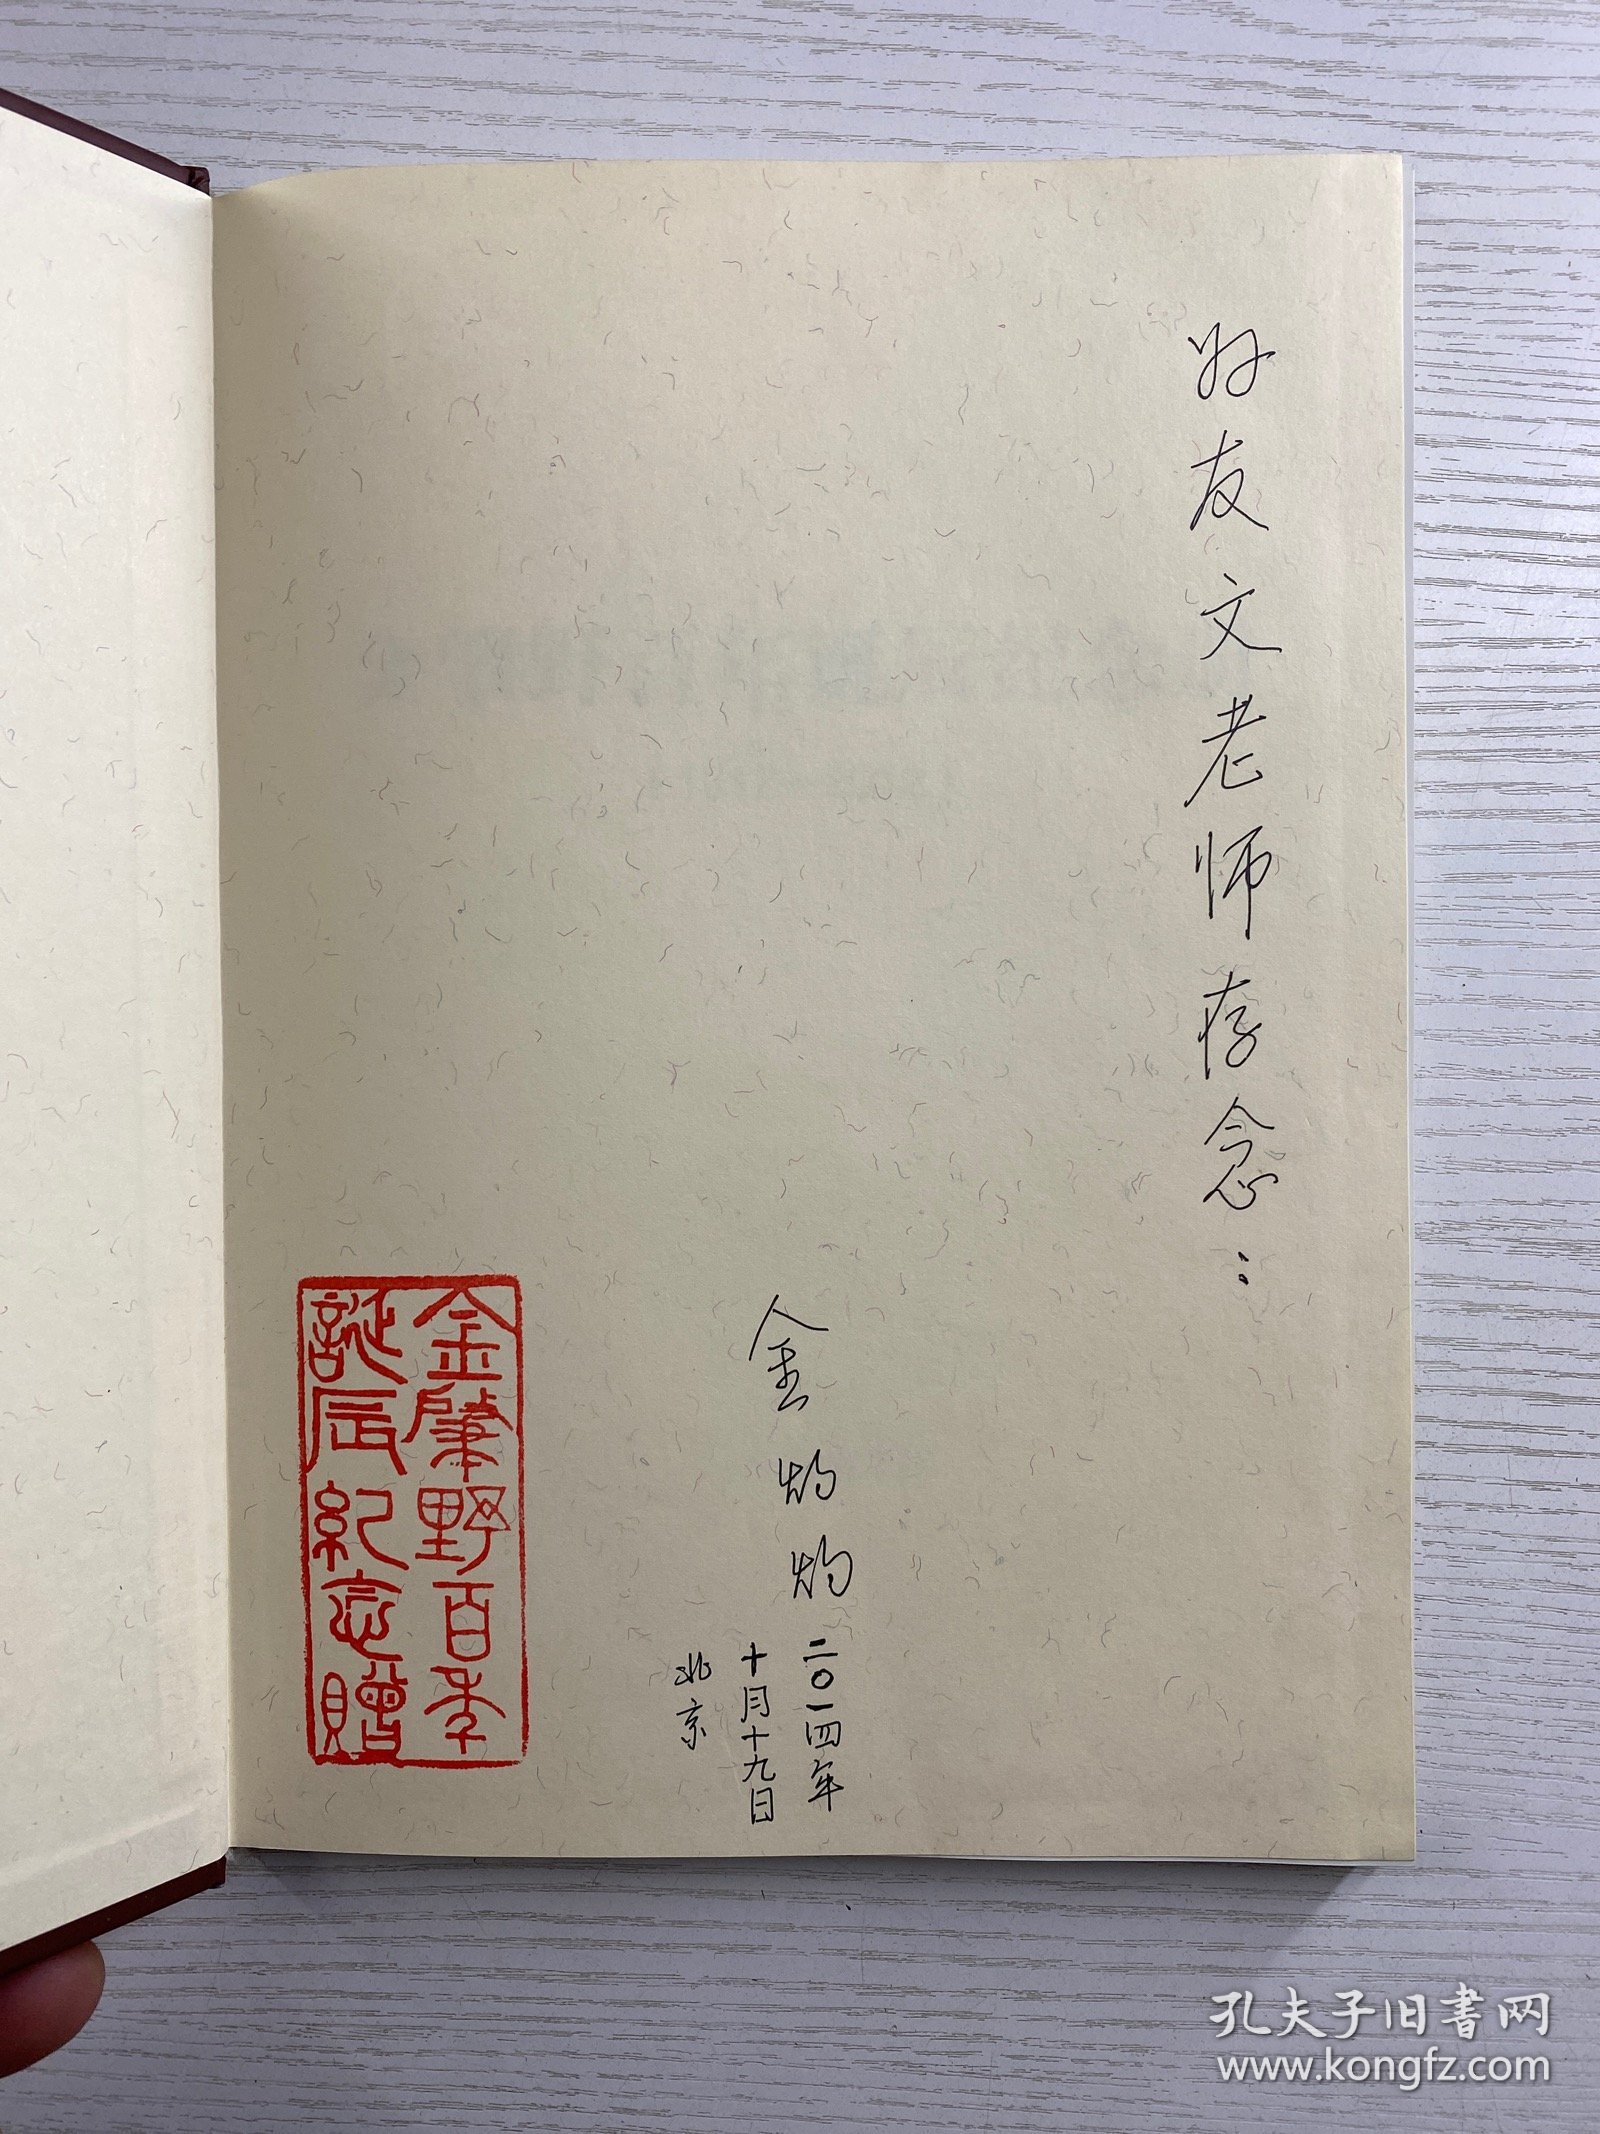 好友文老师存念：
金灼灼
二〇一四年
十月十九日
北京
金肇野百年
誕辰紀念贈
孔夫子旧書网
www.kongfz.com